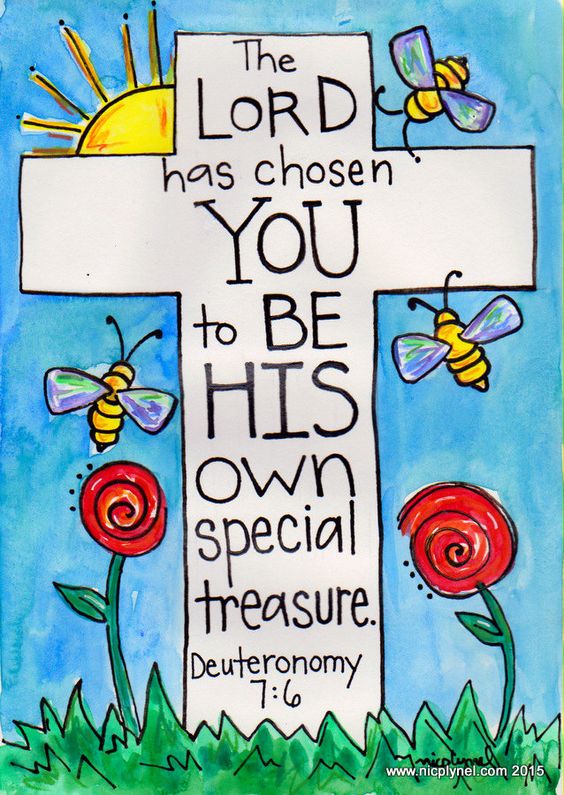 The
LORD
has chosen
YOU
to BE
HIS
own
special
treasure.
Deuteronomy
7:6
nicplynel
www.nicplynel.com 2015